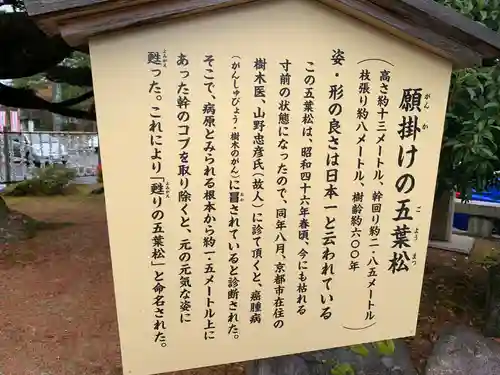 願掛けの五葉松
がん か ご よう まつ
（高さ約十三メートル、幹回り約二・八五メートル
枝張り約八メートル、樹齢約六〇〇年）
姿・形の良さは日本一と云われている
この五葉松は、昭和四十六年春頃、今にも枯れる
寸前の状態になったので、同年八月、京都市在住の
樹木医、山野忠彦氏（故人）に診て頂くと、癌腫病
（がんしゅびょう・樹木のがん）に冒されていると診断された。
おか
そこで、病原とみられる根本から約一・五メートル上に
あった幹のコブを取り除くと、元の元気な姿に
よみがえ
甦った。これにより「甦りの五葉松」と命名された。
よみがえ